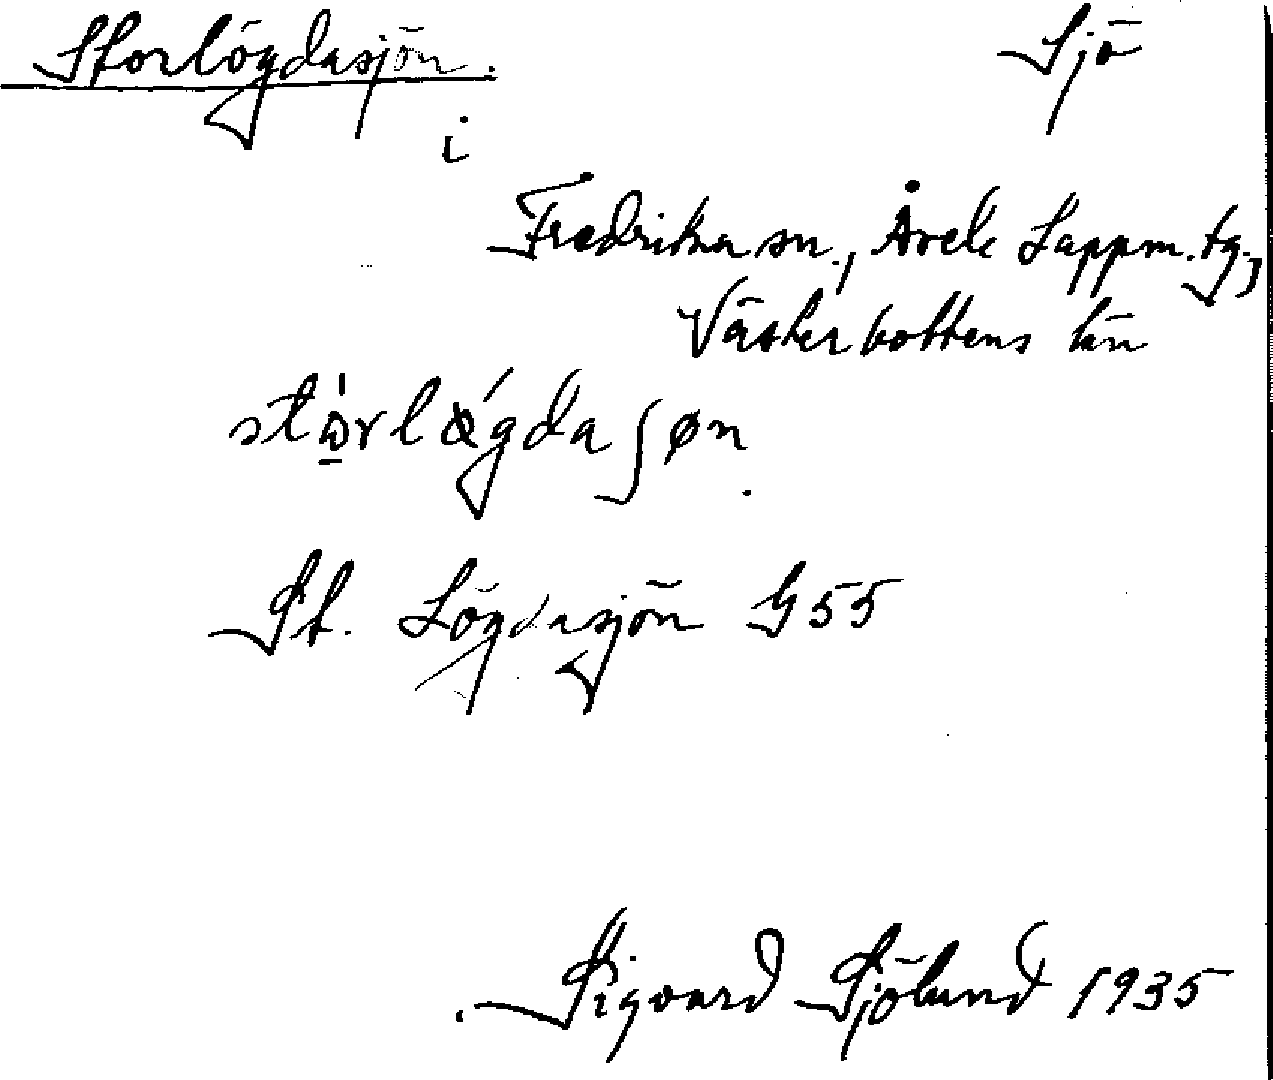 Storlögdasjön. Sjö
i
Fredrika sn., Åsele Lappm. tg.,
Västerbottens län
St. Lögdasjön G 55
Sigvard Sjölund 1935